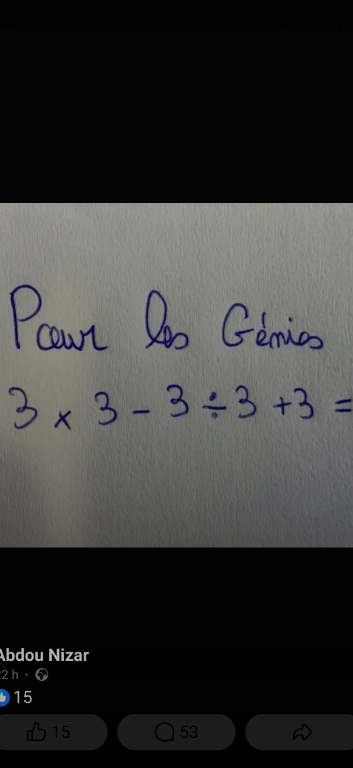 Pour les Génies
3 x 3 - 3 ÷ 3 + 3 =
Abdou Nizar
22 h ·
15
15
53